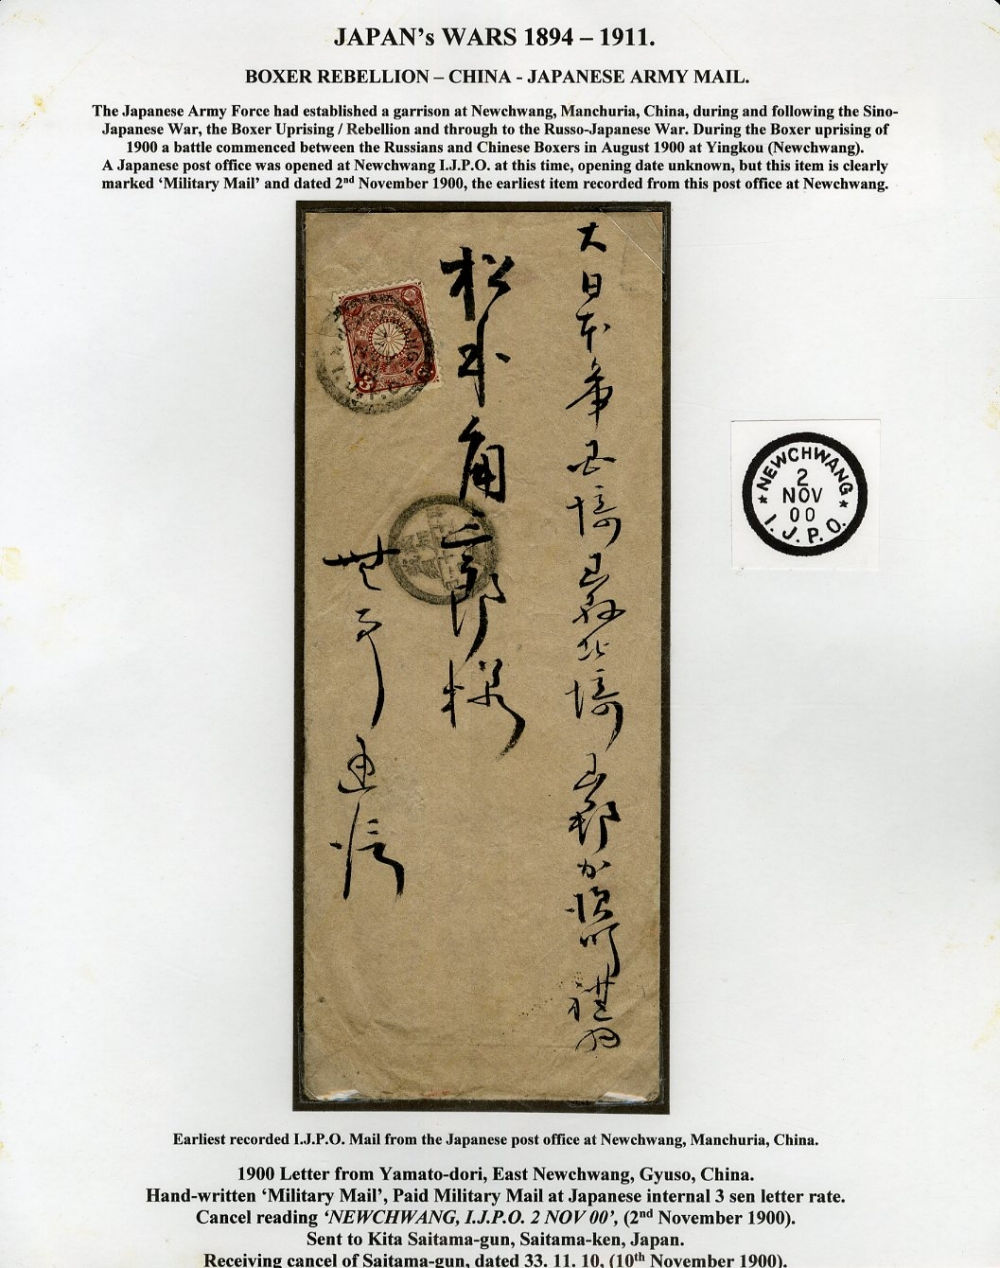 JAPAN's WARS 1894 – 1911.
BOXER REBELLION – CHINA - JAPANESE ARMY MAIL.
The Japanese Army Force had established a garrison at Newchwang, Manchuria, China, during and following the Sino-
Japanese War, the Boxer Uprising / Rebellion and through to the Russo-Japanese War. During the Boxer uprising of
1900 a battle commenced between the Russians and Chinese Boxers in August 1900 at Yingkou (Newchwang).
A Japanese post office was opened at Newchwang I.J.P.O. at this time, opening date unknown, but this item is clearly
marked 'Military Mail' and dated 2nd November 1900, the earliest item recorded from this post office at Newchwang.
大日本
埼
北埼
郡
松本角三郎様
NEWCHWANG
2
NOV
00
I.J.P.O.
Earliest recorded I.J.P.O. Mail from the Japanese post office at Newchwang, Manchuria, China.
1900 Letter from Yamato-dori, East Newchwang, Gyuso, China.
Hand-written 'Military Mail', Paid Military Mail at Japanese internal 3 sen letter rate.
Cancel reading 'NEWCHWANG, I.J.P.O. 2 NOV 00', (2nd November 1900).
Sent to Kita Saitama-gun, Saitama-ken, Japan.
Receiving cancel of Saitama-gun, dated 33. 11. 10, (10th November 1900).